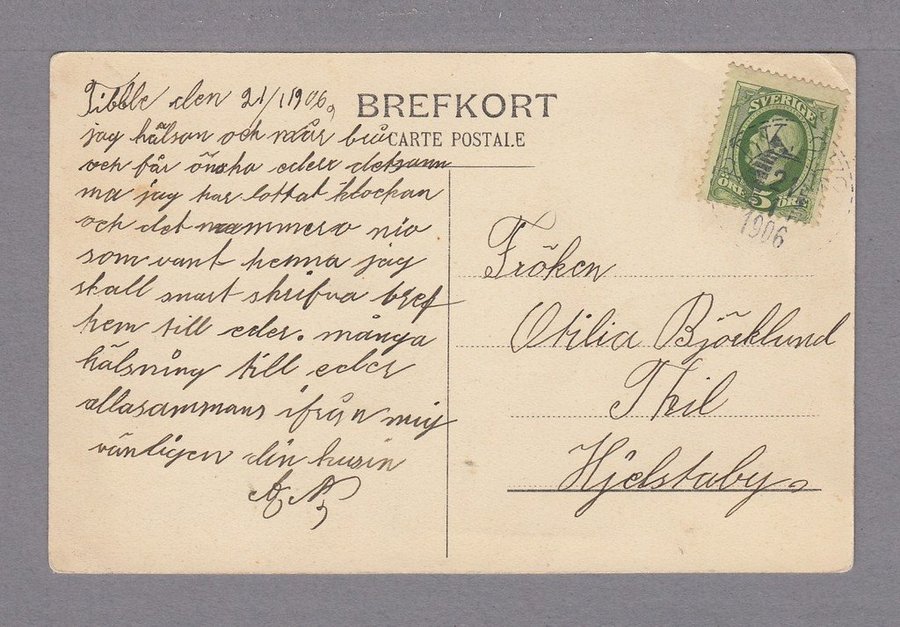 Tibble den 21/1 1906,
BREFKORT
CARTE POSTALE
jag hälsan och mår bra
och får önska eder detsam
ma jag har lottat klockan
och det nammero nio
som vant henna jag
skall snart skrifva bref
hem till eder. många
hälsning till eder
allasammans ifrån mig
vänligen din kusin
A. N
SVERIGE
5
ÖRE ÖRE
1906
Fröken
Otilia Björklund
Thil
Hjelstaby